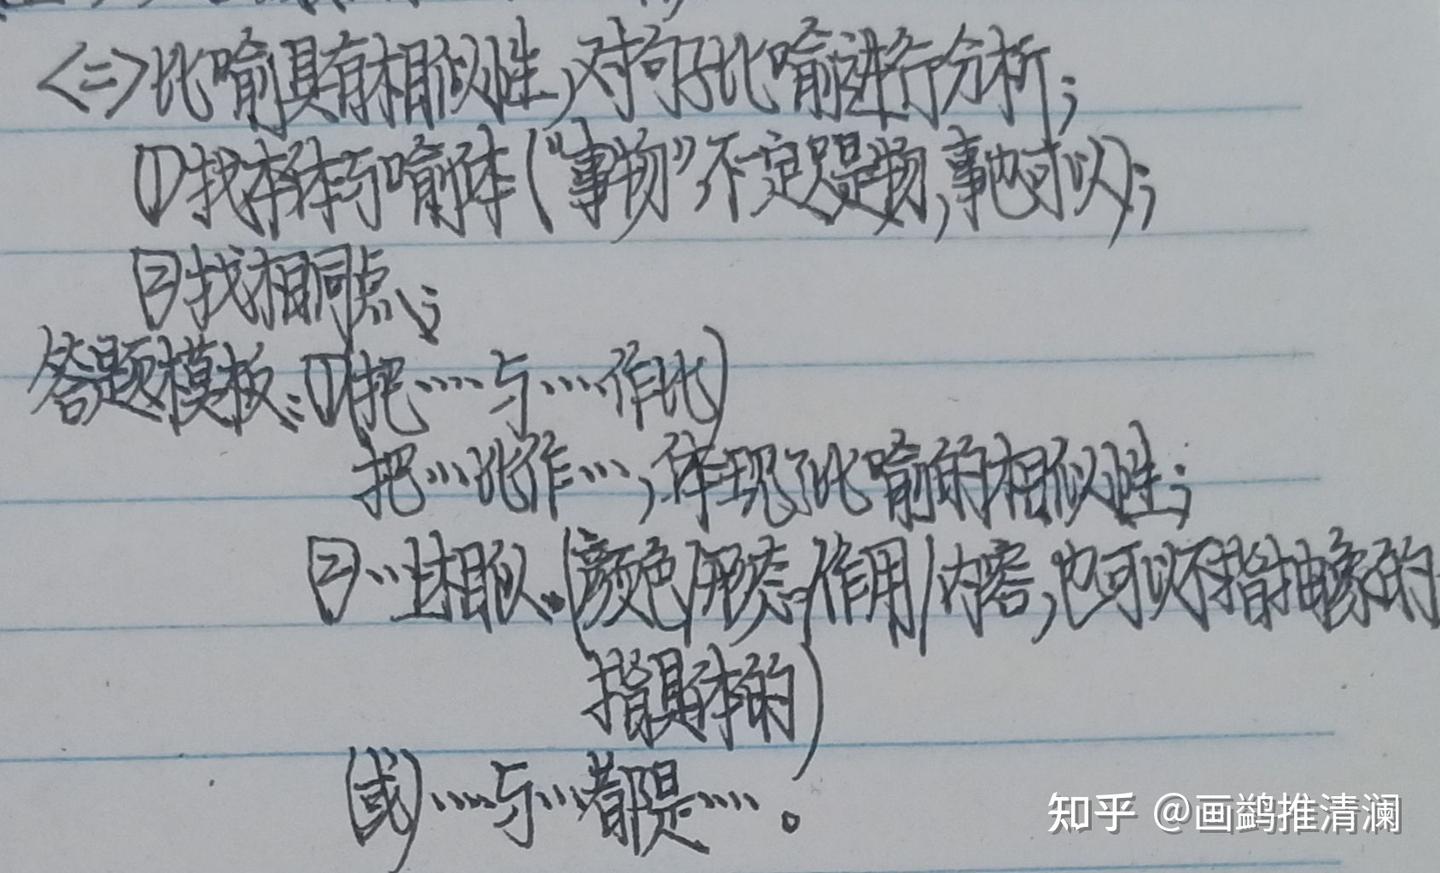 <二>比喻具有相似性,对句子比喻进行分析;
①找本体与喻体(“事物”不一定只是物,事也可以);
②找相同点;
答题模板:①(把……与……作比)
把…比作…,体现了比喻的相似性;
②…上相似。(颜色/形态/作用/内容,也可以不指抽象的
指具体的)
(或)……与…都是……。
知乎 @画鹢推清澜